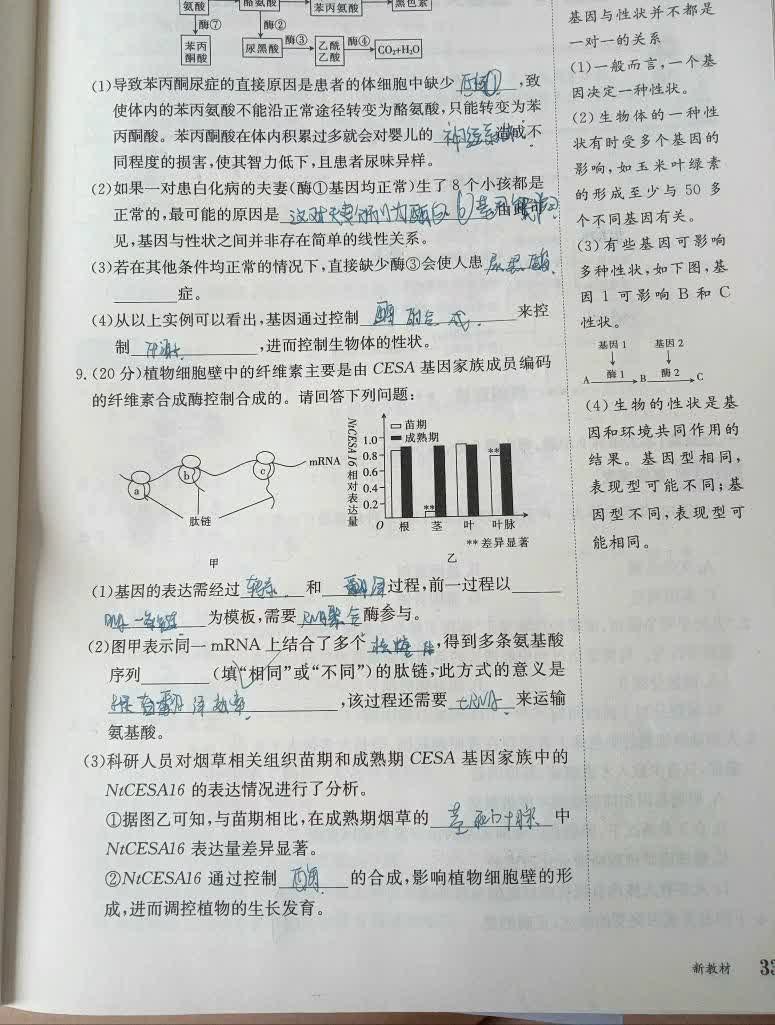 氨酸
酪氨酸
苯丙氨酸
黑色素
酶⑦
酶②
苯丙
酮酸
尿黑酸
酶③
乙酰
乙酸
酶④
CO₂+H₂O
(1)导致苯丙酮尿症的直接原因是患者的体细胞中缺少 酶① ,致
使体内的苯丙氨酸不能沿正常途径转变为酪氨酸,只能转变为苯
丙酮酸。苯丙酮酸在体内积累过多就会对婴儿的 神经系统 造成不
同程度的损害,使其智力低下,且患者尿味异样。
(2)如果一对患白化病的夫妻(酶①基因均正常)生了8个小孩都是
正常的,最可能的原因是 由此可
见,基因与性状之间并非存在简单的线性关系。
(3)若在其他条件均正常的情况下,直接缺少酶③会使人患 尿黑酸
症。
(4)从以上实例可以看出,基因通过控制 酶的合成 来控
制 代谢 ,进而控制生物体的性状。
9.(20分)植物细胞壁中的纤维素主要是由CESA基因家族成员编码
的纤维素合成酶控制合成的。请回答下列问题:
a
b
c
mRNA
肽链
甲
NtCESA16相对表达量
苗期
成熟期
1.0
0.8
0.6
0.4
0.2
O
**
**
根 茎 叶 叶脉
**差异显著
乙
(1)基因的表达需经过 转录 和 翻译 过程,前一过程以
DNA一条链 为模板,需要 RNA聚合 酶参与。
(2)图甲表示同一mRNA上结合了多个 核糖体 ,得到多条氨基酸
序列 (填“相同”或“不同”)的肽链,此方式的意义是
提高翻译效率 ,该过程还需要 tRNA 来运输
氨基酸。
(3)科研人员对烟草相关组织苗期和成熟期CESA基因家族中的
NtCESA16的表达情况进行了分析。
①据图乙可知,与苗期相比,在成熟期烟草的 茎和叶脉 中
NtCESA16表达量差异显著。
②NtCESA16通过控制 酶 的合成,影响植物细胞壁的形
成,进而调控植物的生长发育。
基因与性状并不都是
一对一的关系
(1)一般而言,一个基
因决定一种性状。
(2)生物体的一种性
状有时受多个基因的
影响,如玉米叶绿素
的形成至少与50多
个不同基因有关。
(3)有些基因可影响
多种性状,如下图,基
因1可影响B和C
性状。
基因1 基因2
A 酶1 B 酶2 C
(4)生物的性状是基
因和环境共同作用的
结果。基因型相同,
表现型可能不同;基
因型不同,表现型可
能相同。
新教材 33